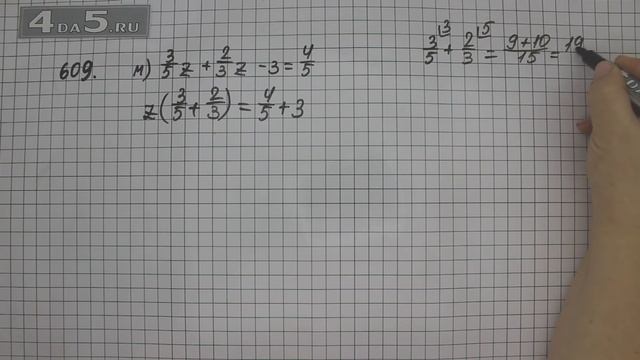 4DA5.RU
609. м) 3/5 z + 2/3 z - 3 = 4/5
z(3/5 + 2/3) = 4/5 + 3
3/5 ⌟3 + 2/3 ⌟5 = 9+10/15 = 19